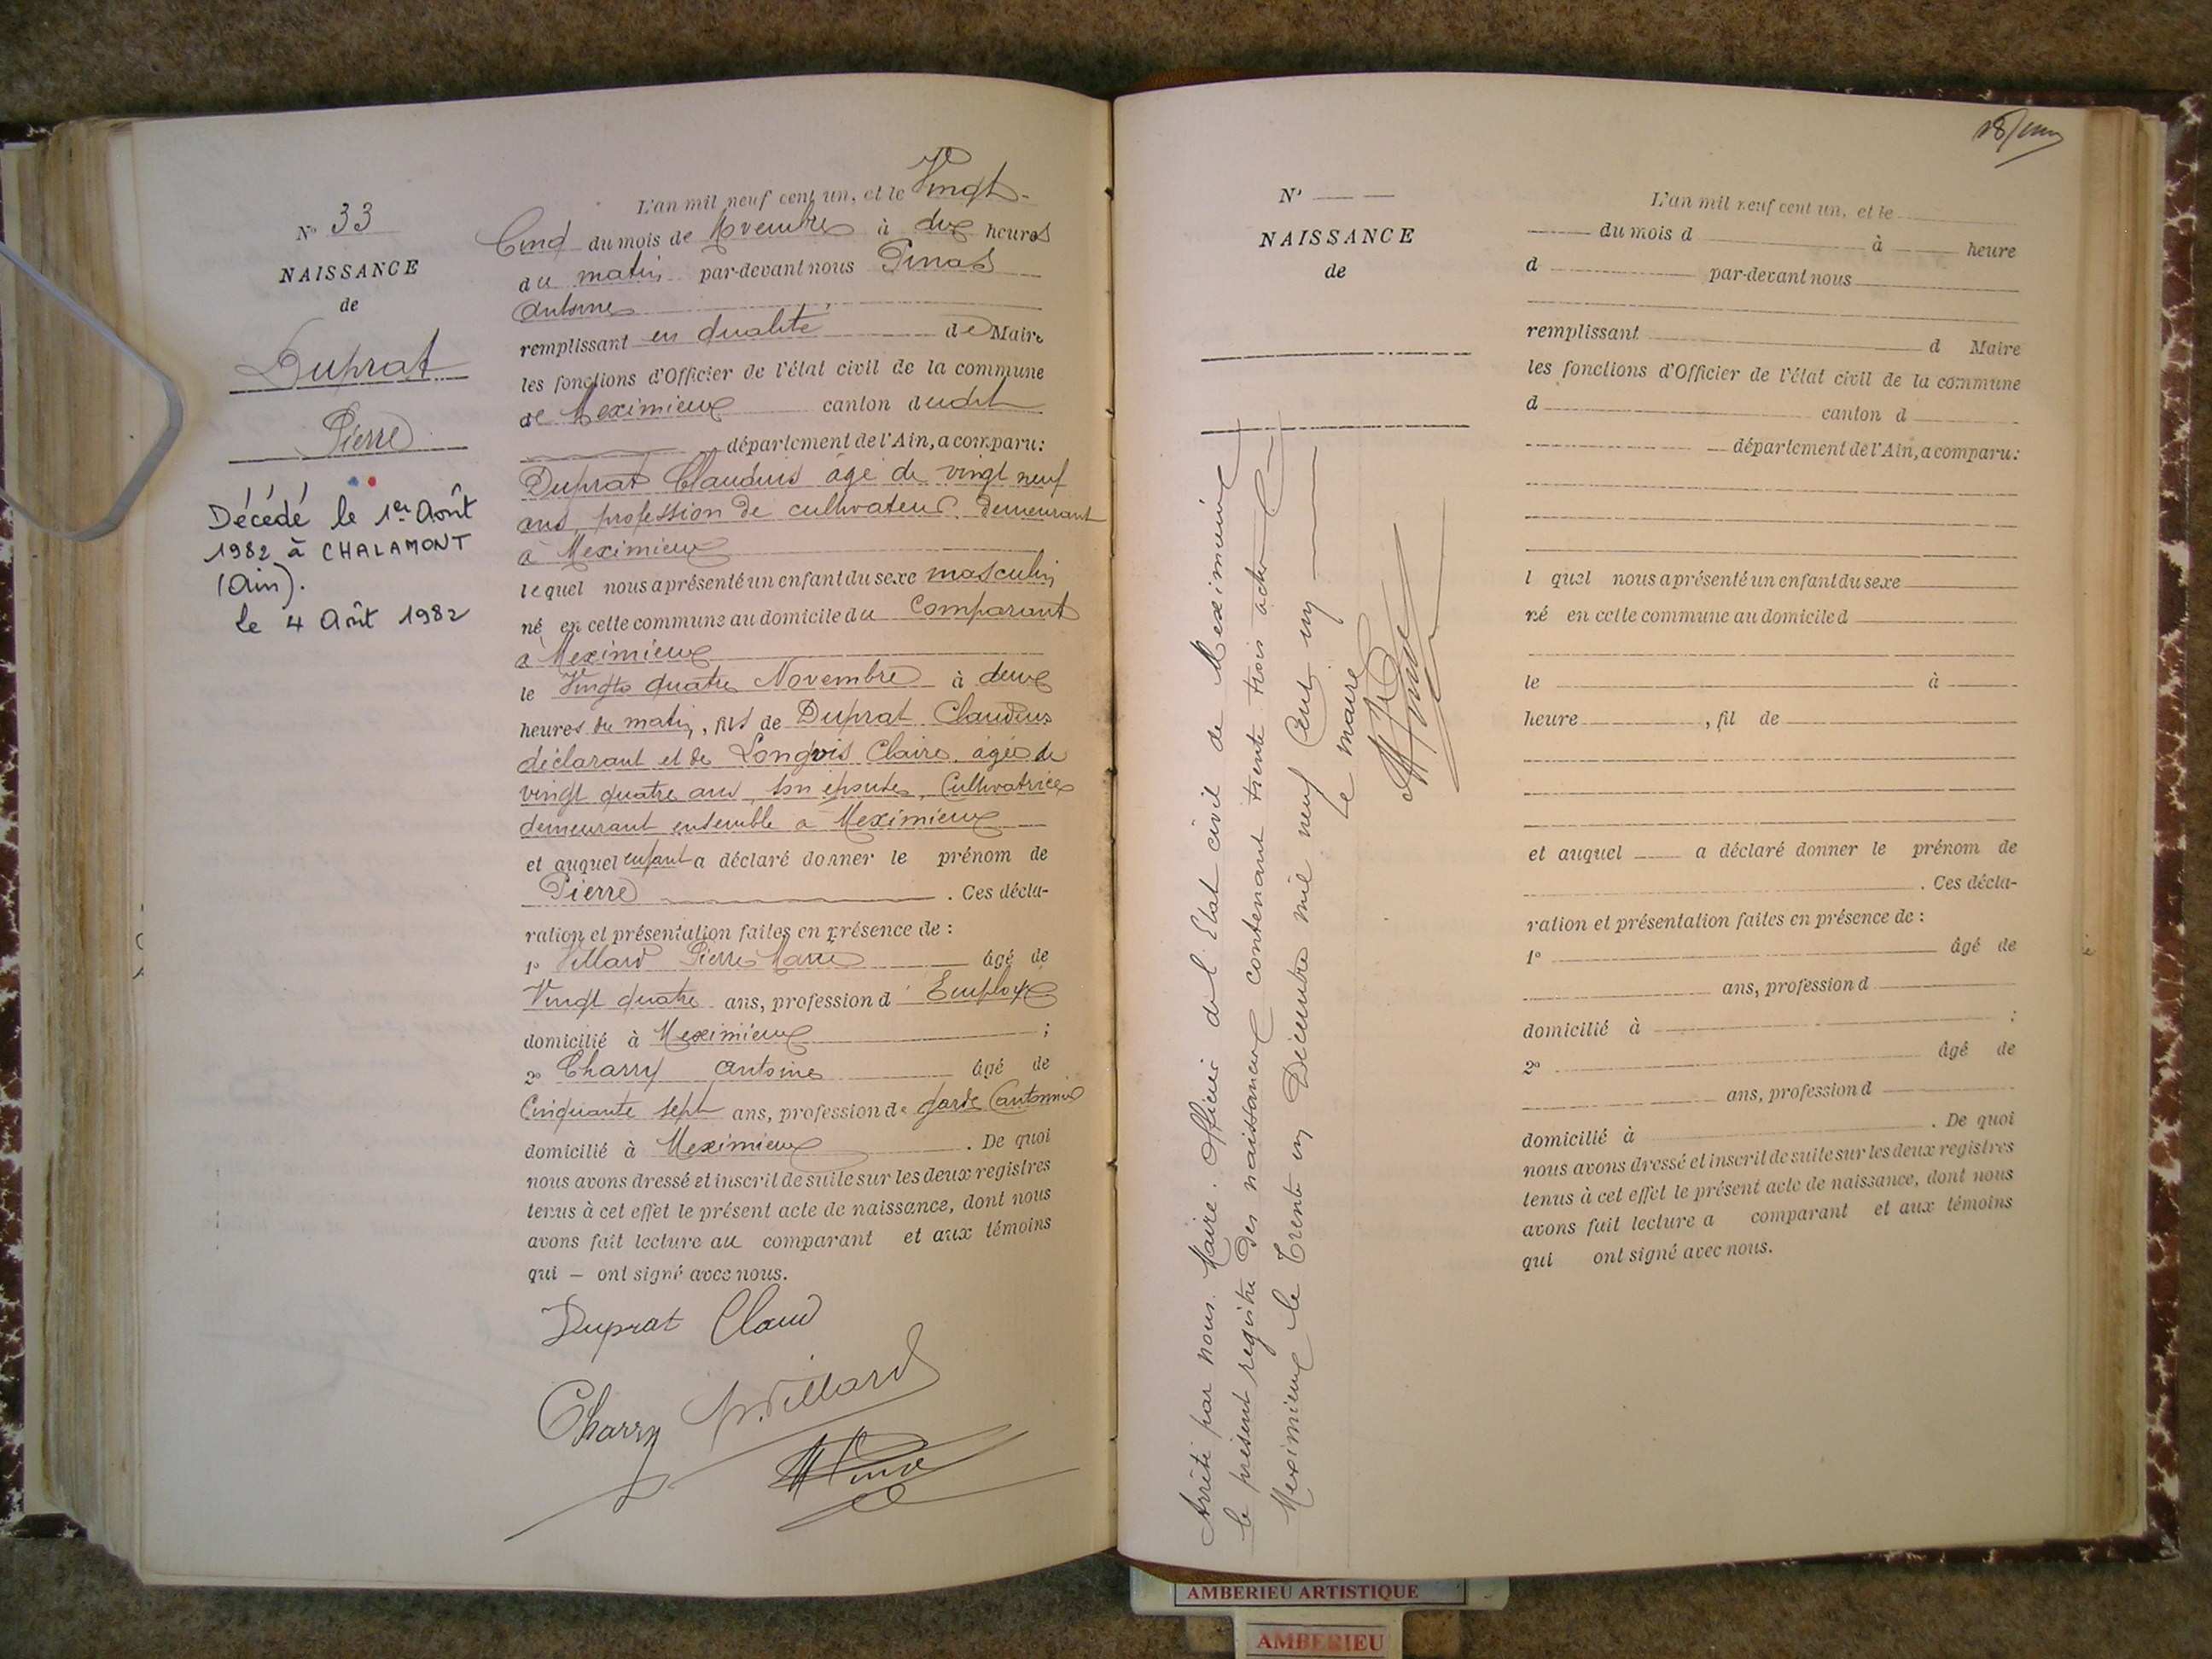 N° 33
NAISSANCE
de
Duprat
Pierre
Décédé le 1er Août
1982 à CHALAMONT
(Ain).
Le 4 Août 1982
L'an mil neuf cent un, et le Vingt-
Cinq du mois de Novembre à dix heures
du matin par-devant nous Pinas
Antoine
remplissant en qualité de Maire
les fonctions d'Officier de l'état civil de la commune
de Meximieux canton dudit
département de l'Ain, a comparu:
Duprat Claudius âgé de vingt neuf
ans, profession de cultivateur, demeurant
à Meximieux
lequel nous a présenté un enfant du sexe masculin
né en cette commune au domicile du Comparant
à Meximieux
le Vingt quatre Novembre à deux
heures du matin, fils de Duprat Claudius
déclarant et de Longvis Claire, âgée de
vingt quatre ans, son épouse, Cultivatrice
demeurant ensemble à Meximieux
et auquel enfant a déclaré donner le prénom de
Pierre . Ces décla-
ration et présentation faites en présence de :
1° Villard Pierre Marie âgé de
Vingt quatre ans, profession d' Employé
domicilié à Meximieux ;
2° Charry Antoine âgé de
Cinquante sept ans, profession de garde Cantonnier
domicilié à Meximieux . De quoi
nous avons dressé et inscrit de suite sur les deux registres
tenus à cet effet le présent acte de naissance, dont nous
avons fait lecture au comparant et aux témoins
qui – ont signé avec nous.
Duprat Claud
Charry P. Villard
N°
NAISSANCE
de
Arrêté par nous, Maire, Officier de l'Etat civil de Meximieux
le présent registre des naissances contenant trente trois actes
Meximieux le Trente un Décembre mil neuf Cent un
Le maire
L'an mil neuf cent un, et le
du mois d à heure
d par-devant nous
remplissant d Maire
les fonctions d'Officier de l'état civil de la commune
d canton d
département de l'Ain, a comparu:
l quel nous a présenté un enfant du sexe
né en cette commune au domicile d
le à
heure , fil de
et auquel a déclaré donner le prénom de
. Ces décla-
ration et présentation faites en présence de :
1° âgé de
ans, profession d
domicilié à ;
2° âgé de
ans, profession d
domicilié à . De quoi
nous avons dressé et inscrit de suite sur les deux registres
tenus à cet effet le présent acte de naissance, dont nous
avons fait lecture a comparant et aux témoins
qui ont signé avec nous.
AMBERIEU ARTISTIQUE
AMBERIEU